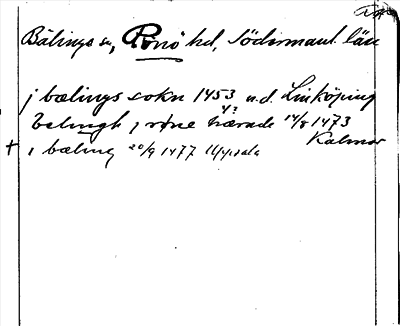 Bälinge sn, Rönö hd, Södermanl. län
j bælings sokn 1453 u.d. Linköping
belingh j røne hærade 14/8 1473 Kalmar
+ i bæling 20/9 1477 Uppsala